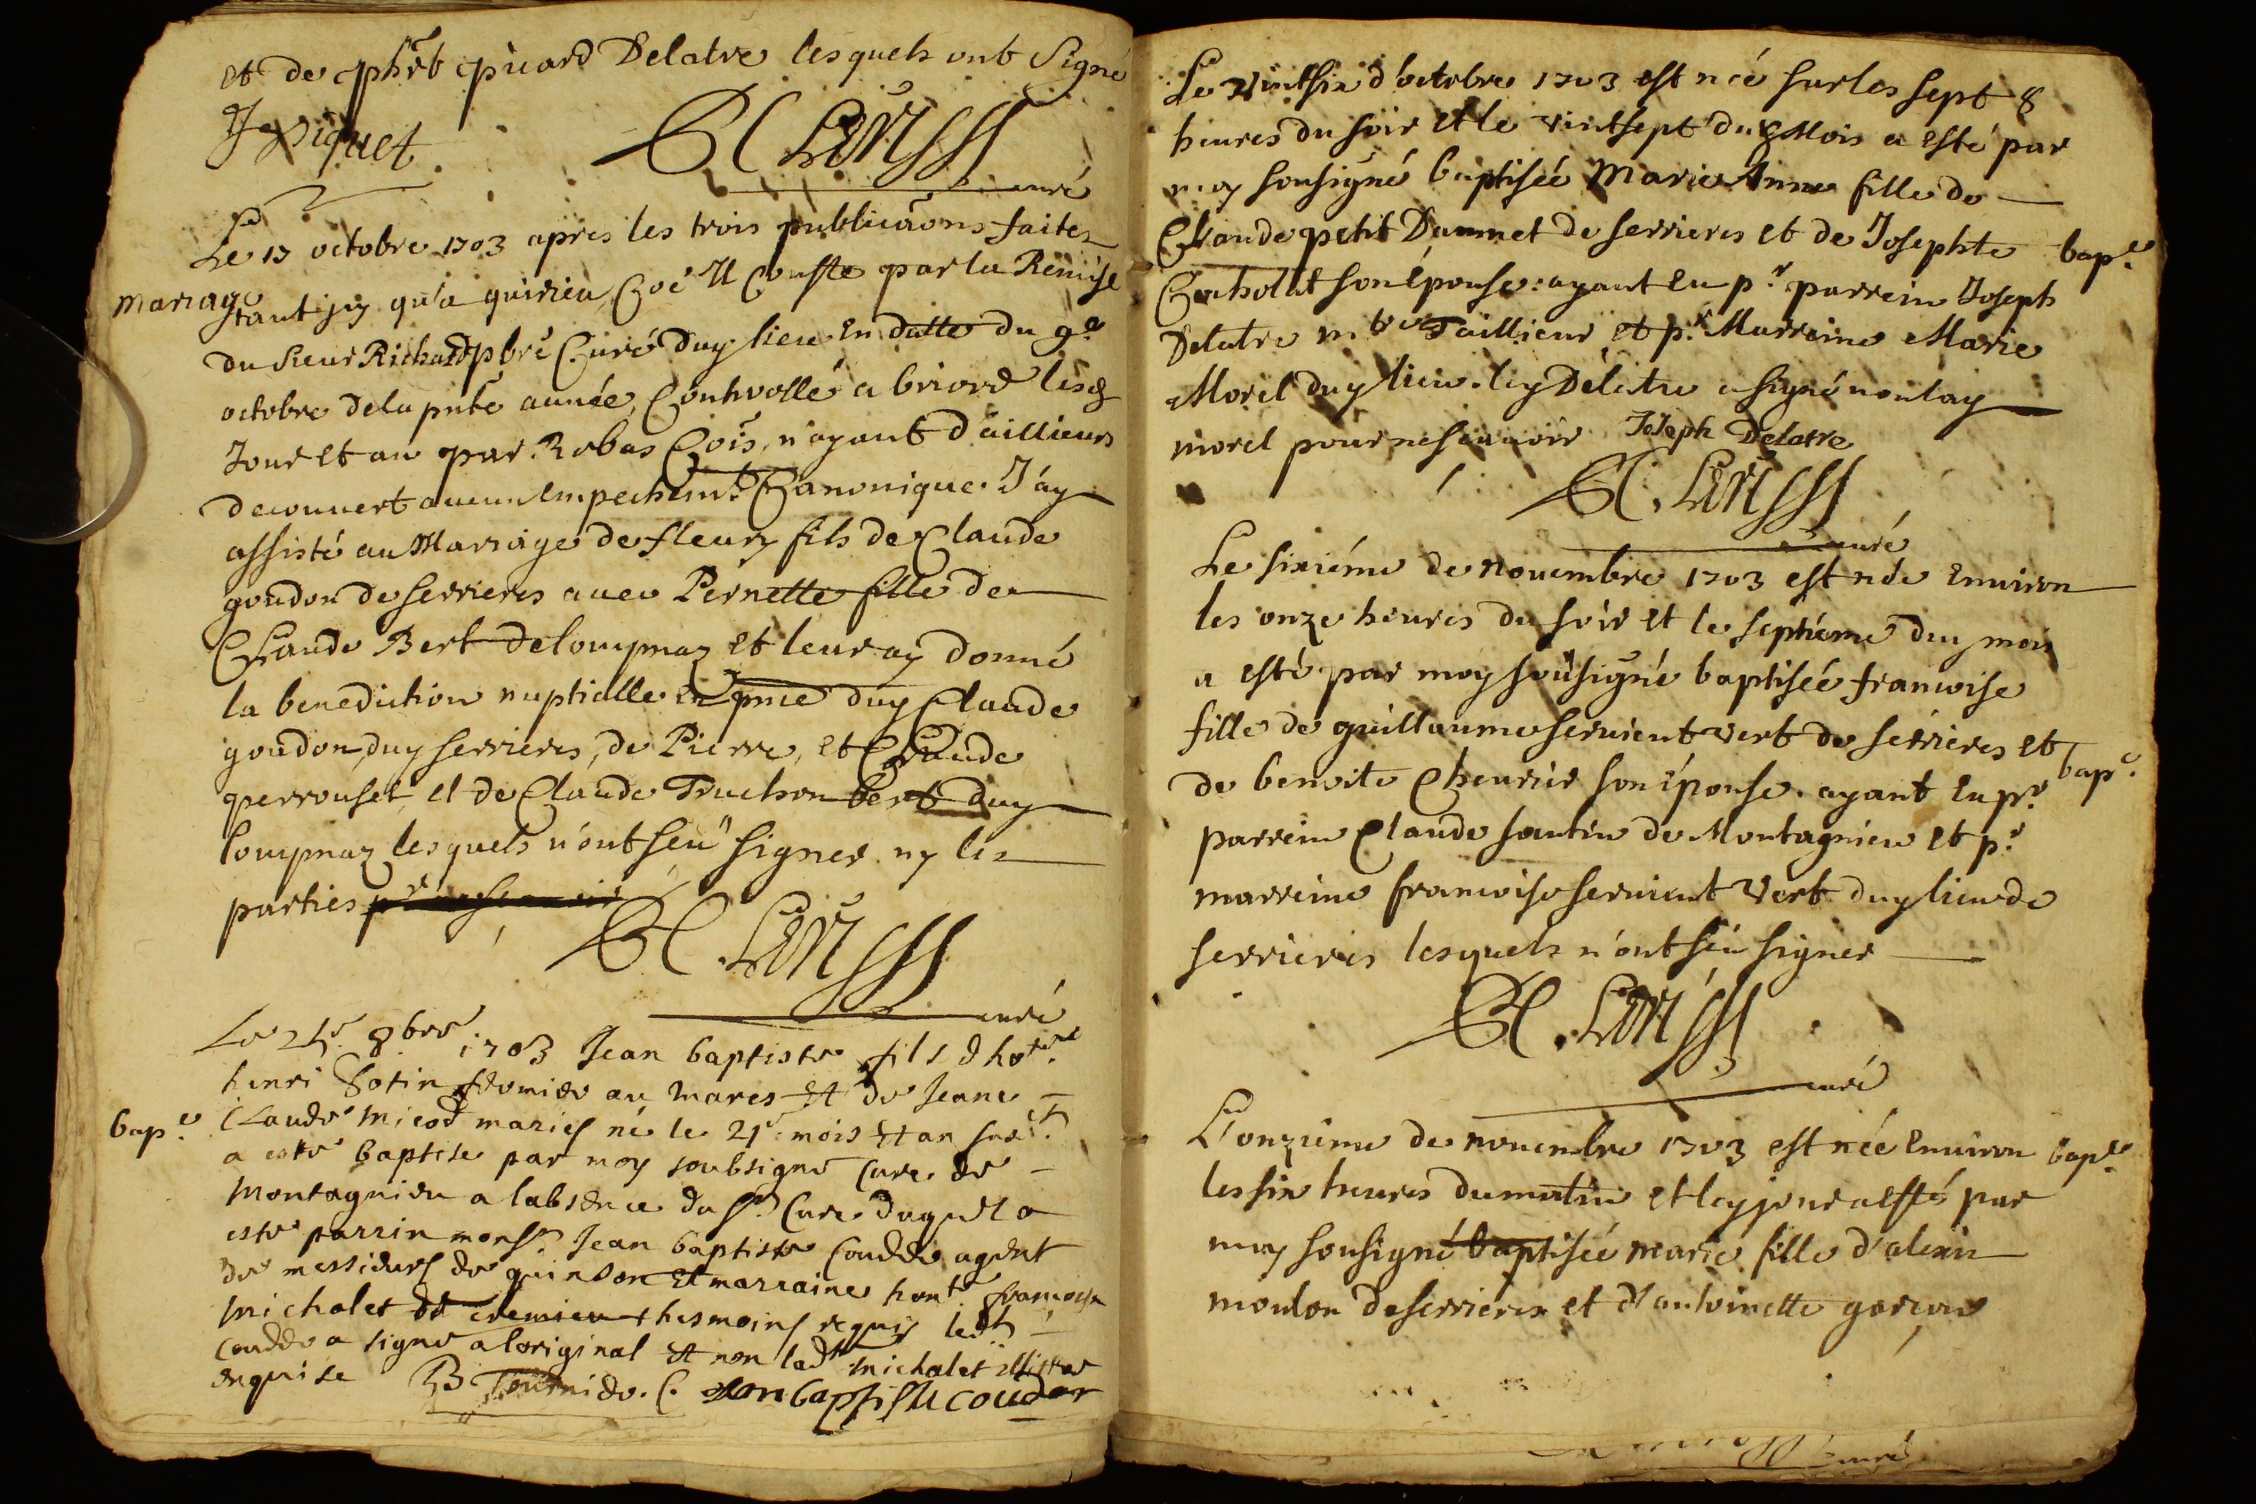 et de phēt picard Delatre lesquels ont signé
J piquet
curé
Le 17 octobre 1703 apres les trois publicaōns faites
mariage
tant jcy qu'a quirieu, coē Il Conste par la Remise
du sieur Richard pbrē Curé duy lieu En datte du 9e
octobre dela pntē année, Controllé a briord lesd
Jour et an par Robas Cois, n'ayant d'aillieurs
decouvert aucun Empechemt Canonique. J'ay
assisté au Marriage de fleury fils de Claude
goudon de serrieres avec Pernette fille de
Claude Bert de lompnaz et leur ay donné
la benediction nuptialle En pnce duy Claude
goudon, duy serrieres, de Pierre, et Claude
perrouset, et de Claude Truchon bert duy
lompnaz lesquels n'ont sceu signer ny les
parties
curé
Le 21e 8bre 1703 Jean baptiste fils d hote
henri Botin fermier au mares et de Jeane
bape
Claude micod maries né le 21e mois et an susd
a este baptise par moy soubsigne Cure de
montagnieu a labsence du sr Cure duquel a
este parrin monsr Jean baptiste Coudde agent
de messieurs de quinson et marraine hont francoise
michalet de cremieu thesmoins requis ledt
coudde a signe a loriginal et non ladt michalet illitere
enquise B Tournide. C. Jean baptiste coudde
Le vintsix d'octobre 1703 est née sur les sept 8
heures du soir et le vintsept dud Mois a esté par
moy sousigné baptisée Marie Anne fille de
Claude petit Dammet de serrieres et de Josephte
bape
son Epouse: ayant Eu pr parrein Joseph
Delatre mtre Taillieur et pr Marreine Marie
Morel duy lieu. ley Delatre a signé non lay
morel pour ne scavoir Joseph Delatre
curé
Le sixiéme de novembre 1703 est née Environ
les onze heures du soir et le septiéme duy mois
a esté par moy sousigné baptisée francoise
fille de guillaume servient vert de serrieres et
bape
de benoite Chevrier son épouse. ayant Eu pr
parrein Claude santin de Montagnieu et pr
marreine francoise servient Vert duy lieu de
serrieres lesquels n'ont sceu signer
curé
L'onziéme de novembre 1703 est née Environ
bape
les six heures du matin et ley jour a esté par
moy sousigné baptisée marie fille d'alexis
moulon de serrieres et d'antoinette
curé